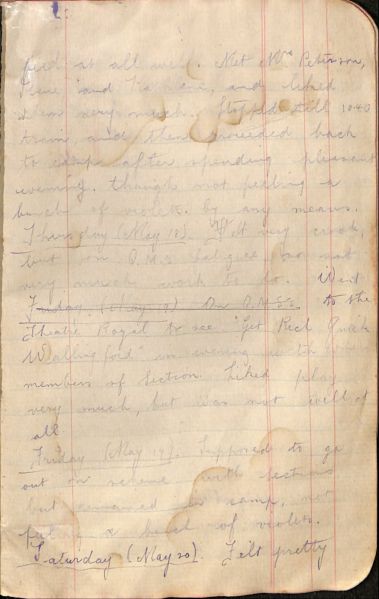 feel at all well. Met Mrs Peterson,
and and liked
them very much. Stopped till 10.40
train, and then proceeded back
to camp after spending pleasant
evening, though not feeling a
bunch of violets by any means.
Thursday (May 18). Felt very crook,
but on Q.M.S. fatigue, so not
very much work to do. Went
Friday (May 19) On Q.M.S. to the
Theatre Royal to see "Get Rich Quick
Wallingford" in evening with
members of Section. Liked play
very much, but was not well at
all
Friday (May 19). Supposed to go
out on with sections
but remained in camp, not
feeling a bunch of violets.
Saturday (May 20). Felt pretty